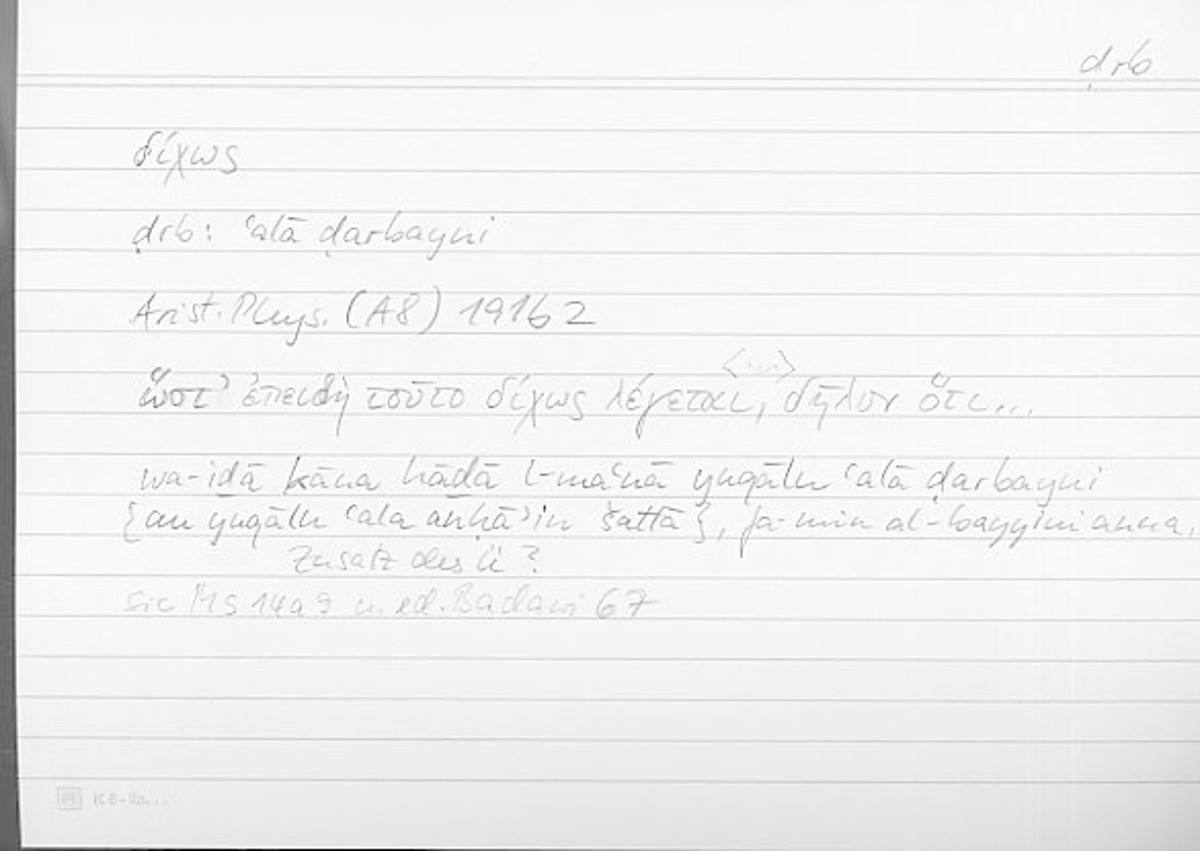 ḍrb
δίχως
ḍrb: ʿalā ḍarbayni
Arist. Phys. (A8) 191b 2
<...>
ὥστ' ἐπειδὴ τοῦτο δίχως λέγεται, δῆλον ὅτι...
wa-iḏā kāna hāḏā l-maʿnā yuqālu ʿalā ḍarbayni
{au yuqālu ʿala anḥāʾin šattā}, fa-min al-bayyini anna.
Zusatz des Ü?
sic MS 14a9 u. ed. Badawi 67